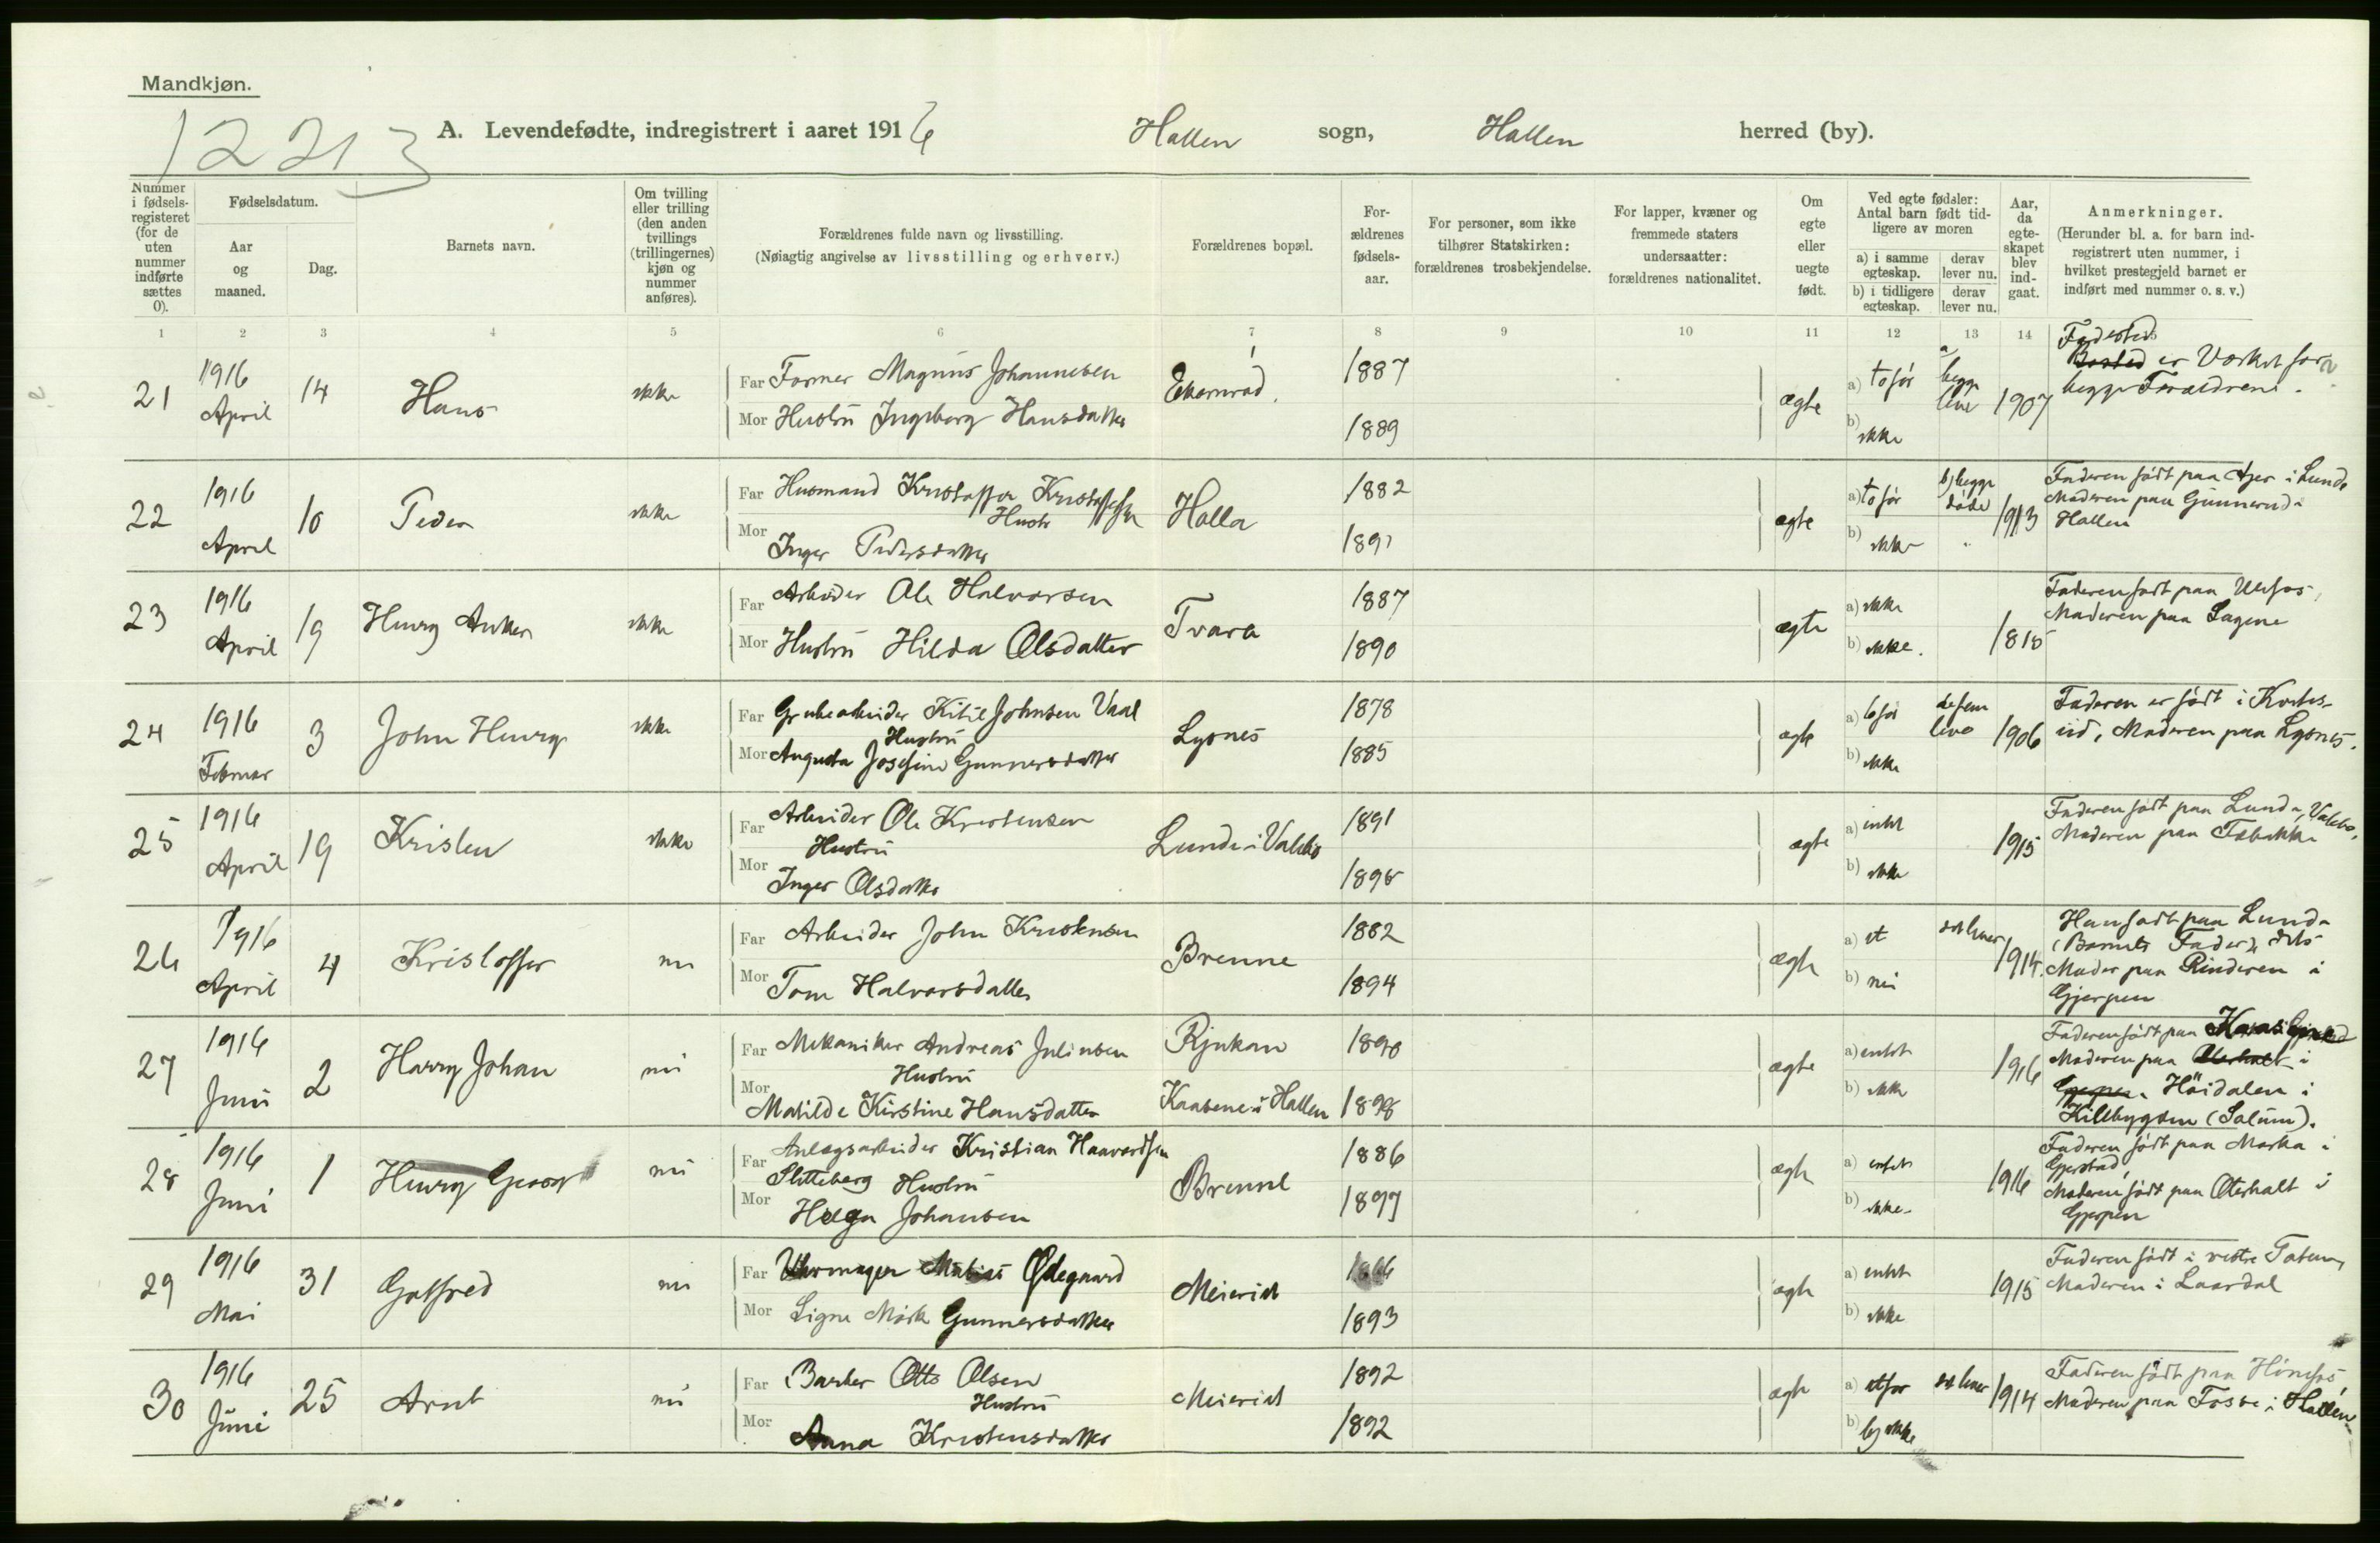 Mandkjøn.
12213
A. Levendefødte, indregistrert i aaret 1916 Hallen sogn, Hallen herred (by).
Nummer i fødsels-registeret (for de uten nummer indførte sættes 0).
Fødselsdatum.
Aar og maaned.
Dag.
Barnets navn.
Om tvilling eller trilling (den anden tvillings (trillingernes) kjøn og nummer anføres).
Forældrenes fulde navn og livsstilling.
(Nøiagtig angivelse av livsstilling og erhverv.)
Forældrenes bopæl.
For-ældrenes fødsels-aar.
For personer, som ikke tilhører Statskirken: forældrenes trosbekjendelse.
For lapper, kvæner og fremmede staters undersaatter: forældrenes nationalitet.
Om egte eller uegte født.
Ved egte fødsler: Antal barn født tid-ligere av moren
a) i samme egteskap.
derav lever nu.
b) i tidligere egteskap.
derav lever nu.
Aar, da egte-skapet blev ind-gaat.
Anmerkninger.
(Herunder bl. a. for barn ind-registrert uten nummer, i hvilket prestegjeld barnet er indført med nummer o. s. v.)
1 2 3 4 5 6 7 8 9 10 11 12 13 14
21 1916 April 14 Hans ikke
Far Former Magnus Johannesen 1887
Mor Hustru Ingeborg Hansdatter 1889
ægte a) to før begge leve b) ikke 1907
Fødested
Bosted er Værket for
begge Forældrene.
22 1916 April 10 Peder ikke
Far Husmand Kristoffer Kristoffersen Halla 1882
Hustr
Mor Inger Pedersdatter 1891
ægte a) to før begge døde b) ikke 1913
Faderen født paa Ajer i Lunde
Moderen paa Gunnerud i
Hallen
23 1916 April 19 Henry Anker ikke
Far Arbeider Ole Halvorsen Tvara 1887
Mor Hustru Hilda Olsdatter 1890
ægte a) ikke b) ikke. 1815
Faderen født paa Ulefos,
Moderen paa Lagene
24 1916 Februar 3 John Henry ikke
Far Grubearbeider Kitil Johnsen Vaal Lysnes 1878
Hustru
Mor Augusta Josefine Gunnersdatter 1885
ægte a) b) ikke 1906
Faderen er født i Kvites-
eid, Moderen paa Lysnes.
25 1916 April 19 Kristen ikke
Far Arbeider Ole Kristensen Lunde i Valebø 1891
Hustru
Mor Inger Olsdatter 1895
ægte a) intet b) ikke 1915
Faderen født paa Lunde, Valebø,
Moderen paa Tobakke
26 1916 April 4 Kristoffer nei
Far Arbeider John Kristensen Brenne 1882
Mor Tom Halvorsdatter 1894
ægte a) et b) nei 1914.
Han født paa Lunde
(Barnets Fader), dets
Moder paa Rinderen i
Gjerpen
27 1916 Juni 2 Harry Johan nei
Far Mekaniker Andreas Julinsen Rjukan 1890
Hustru
Mor Matilde Kirstine Hansdatter Kaasene i Hallen 1898
ægte a) intet b) ikke 1916
Faderen født paa Kaas i Gjerstad
Moderen paa Oterholt i
Gjerpen. Høidalen i
Kilebygden (Solum).
28 1916 Juni 1 Henry Georg nei
Far Anlægsarbeider Kristian Haavardsen 1886
Slitteberg Hustru Brenne
Mor Helga Johansen 1897
ægte a) intet b) ikke 1916
Faderen født paa Marka i
Gjerstad,
Moderen født paa Oterholt i
Gjerpen
29 1916 Mai 31 Gotfred nei
Far Uhrmager Matias Ødegaard Meieriet
Mor Signe Mark Gunnersdatter 1893
ægte a) intet b) ikke 1915
Faderen født i vestre Toten,
Moderen i Laardal
30 1916 Juni 25 Arnt nei
Far Barber Otto Olsen Meieriet 1892
Hustru
Mor Anna Kristensdatter 1892
ægte a) et før b) ikke 1914
Faderen født paa Hønefos
Moderen paa Fosse i Hallen